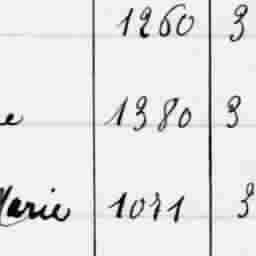 1260 3
e 1380 3
Marie 1071 3